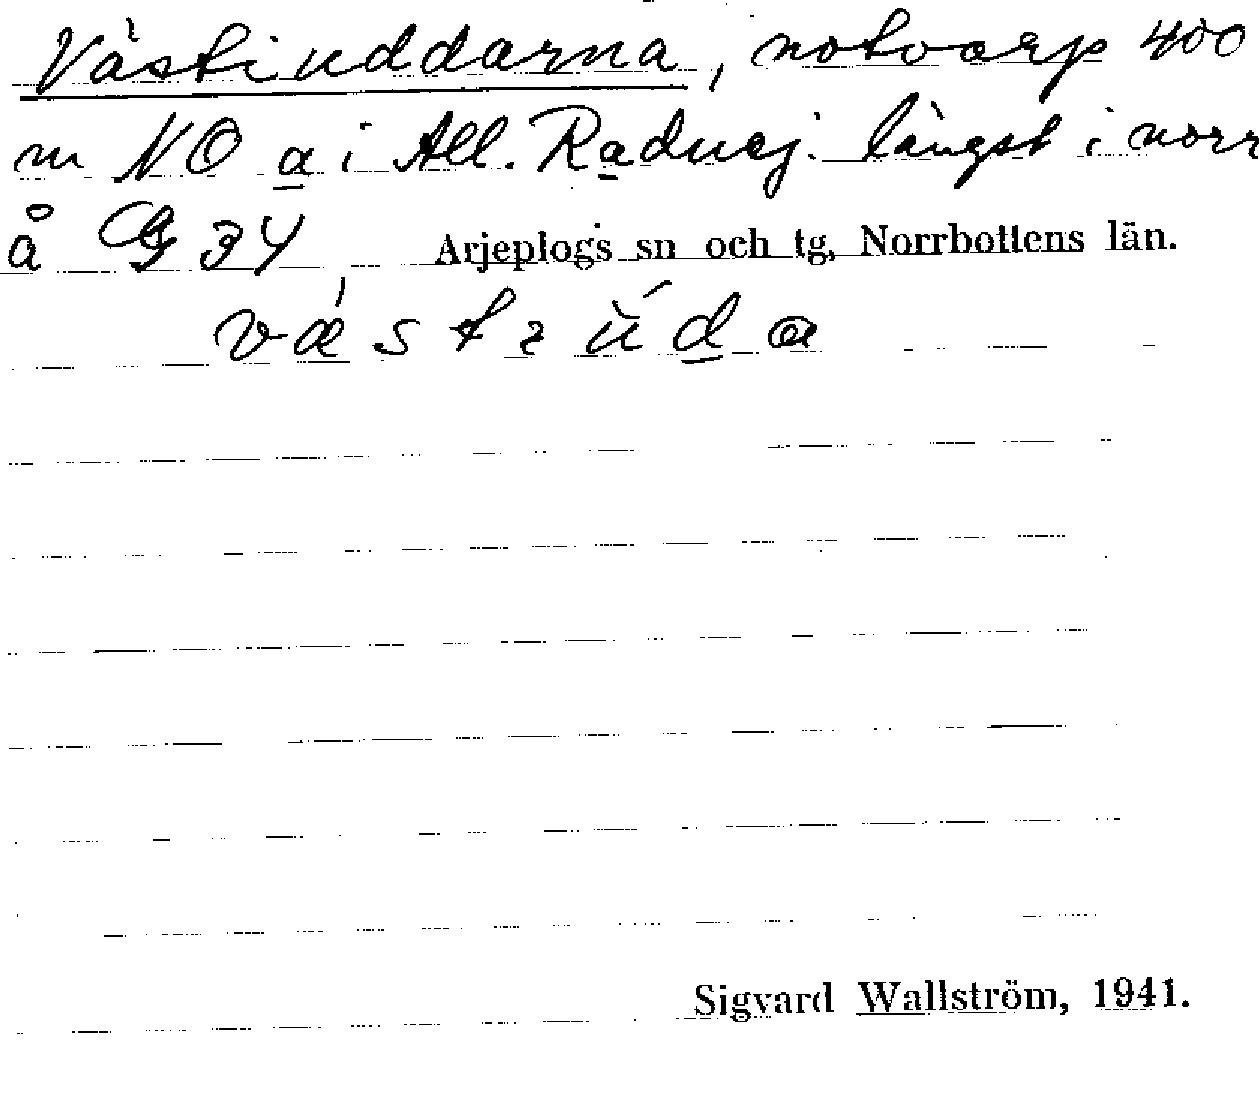 Västiuddarna, notvarp 400
m NO a i All. Raduej. längst i norr
å G 34, Arjeplogs sn och tg, Norrbottens län.
Sigvard Wallström, 1941.